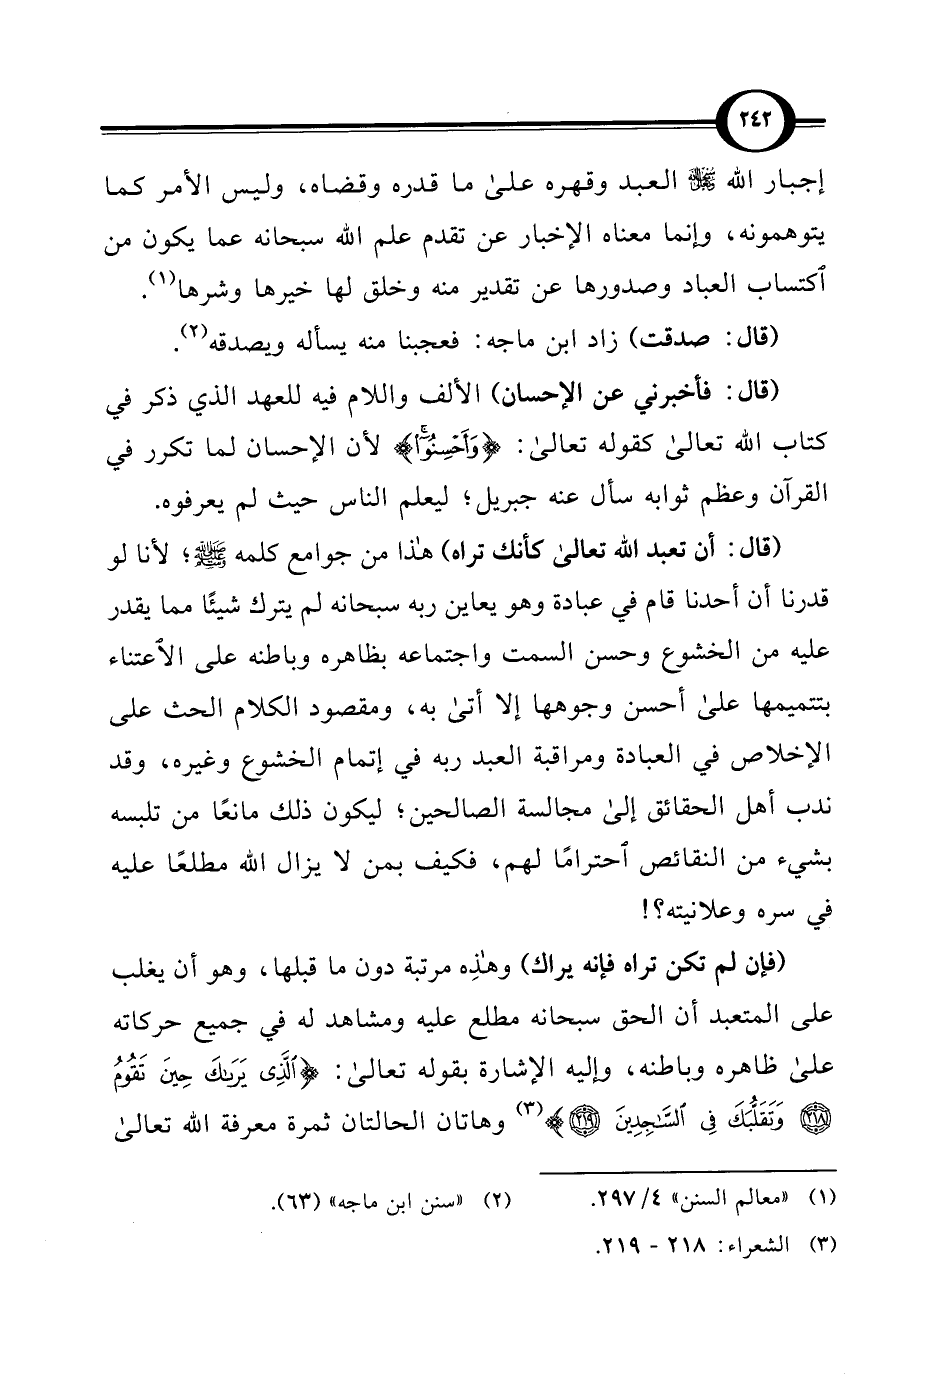 ٢٤٢
إجبار الله ﷻ العبد وقهره علىٰ ما قدره وقضاه، وليس الأمر كما
يتوهمونه، وإنما معناه الإخبار عن تقدم علم الله سبحانه عما يكون من
ٱكتساب العباد وصدورها عن تقدير منه وخلق لها خيرها وشرها(١).
(قال: صدقت) زاد ابن ماجه: فعجبنا منه يسأله ويصدقه(٢).
(قال: فأخبرني عن الإحسان) الألف واللام فيه للعهد الذي ذكر في
كتاب الله تعالىٰ كقوله تعالىٰ: ﴿وَأَحْسِنُوٓا۟﴾ لأن الإحسان لما تكرر في
القرآن وعظم ثوابه سأل عنه جبريل؛ ليعلم الناس حيث لم يعرفوه.
(قال: أن تعبد الله تعالىٰ كأنك تراه) هٰذا من جوامع كلمه ﷺ؛ لأنا لو
قدرنا أن أحدنا قام في عبادة وهو يعاين ربه سبحانه لم يترك شيئًا مما يقدر
عليه من الخشوع وحسن السمت واجتماعه بظاهره وباطنه على الٱعتناء
بتتميمها علىٰ أحسن وجوهها إلا أتىٰ به، ومقصود الكلام الحث على
الإخلاص في العبادة ومراقبة العبد ربه في إتمام الخشوع وغيره، وقد
ندب أهل الحقائق إلىٰ مجالسة الصالحين؛ ليكون ذلك مانعًا من تلبسه
بشيء من النقائص ٱحترامًا لهم، فكيف بمن لا يزال الله مطلعًا عليه
في سره وعلانيته؟!
(فإن لم تكن تراه فإنه يراك) وهٰذِه مرتبة دون ما قبلها، وهو أن يغلب
على المتعبد أن الحق سبحانه مطلع عليه ومشاهد له في جميع حركاته
علىٰ ظاهره وباطنه، وإليه الإشارة بقوله تعالىٰ: ﴿ٱلَّذِى يَرَىٰكَ حِينَ تَقُومُ
﴿٢١٨﴾ وَتَقَلُّبَكَ فِى ٱلسَّٰجِدِينَ ﴿٢١٩﴾﴾(٣) وهاتان الحالتان ثمرة معرفة الله تعالىٰ
(١) «معالم السنن» ٤/ ٢٩٧. (٢) «سنن ابن ماجه» (٦٣).
(٣) الشعراء: ٢١٨ - ٢١٩.